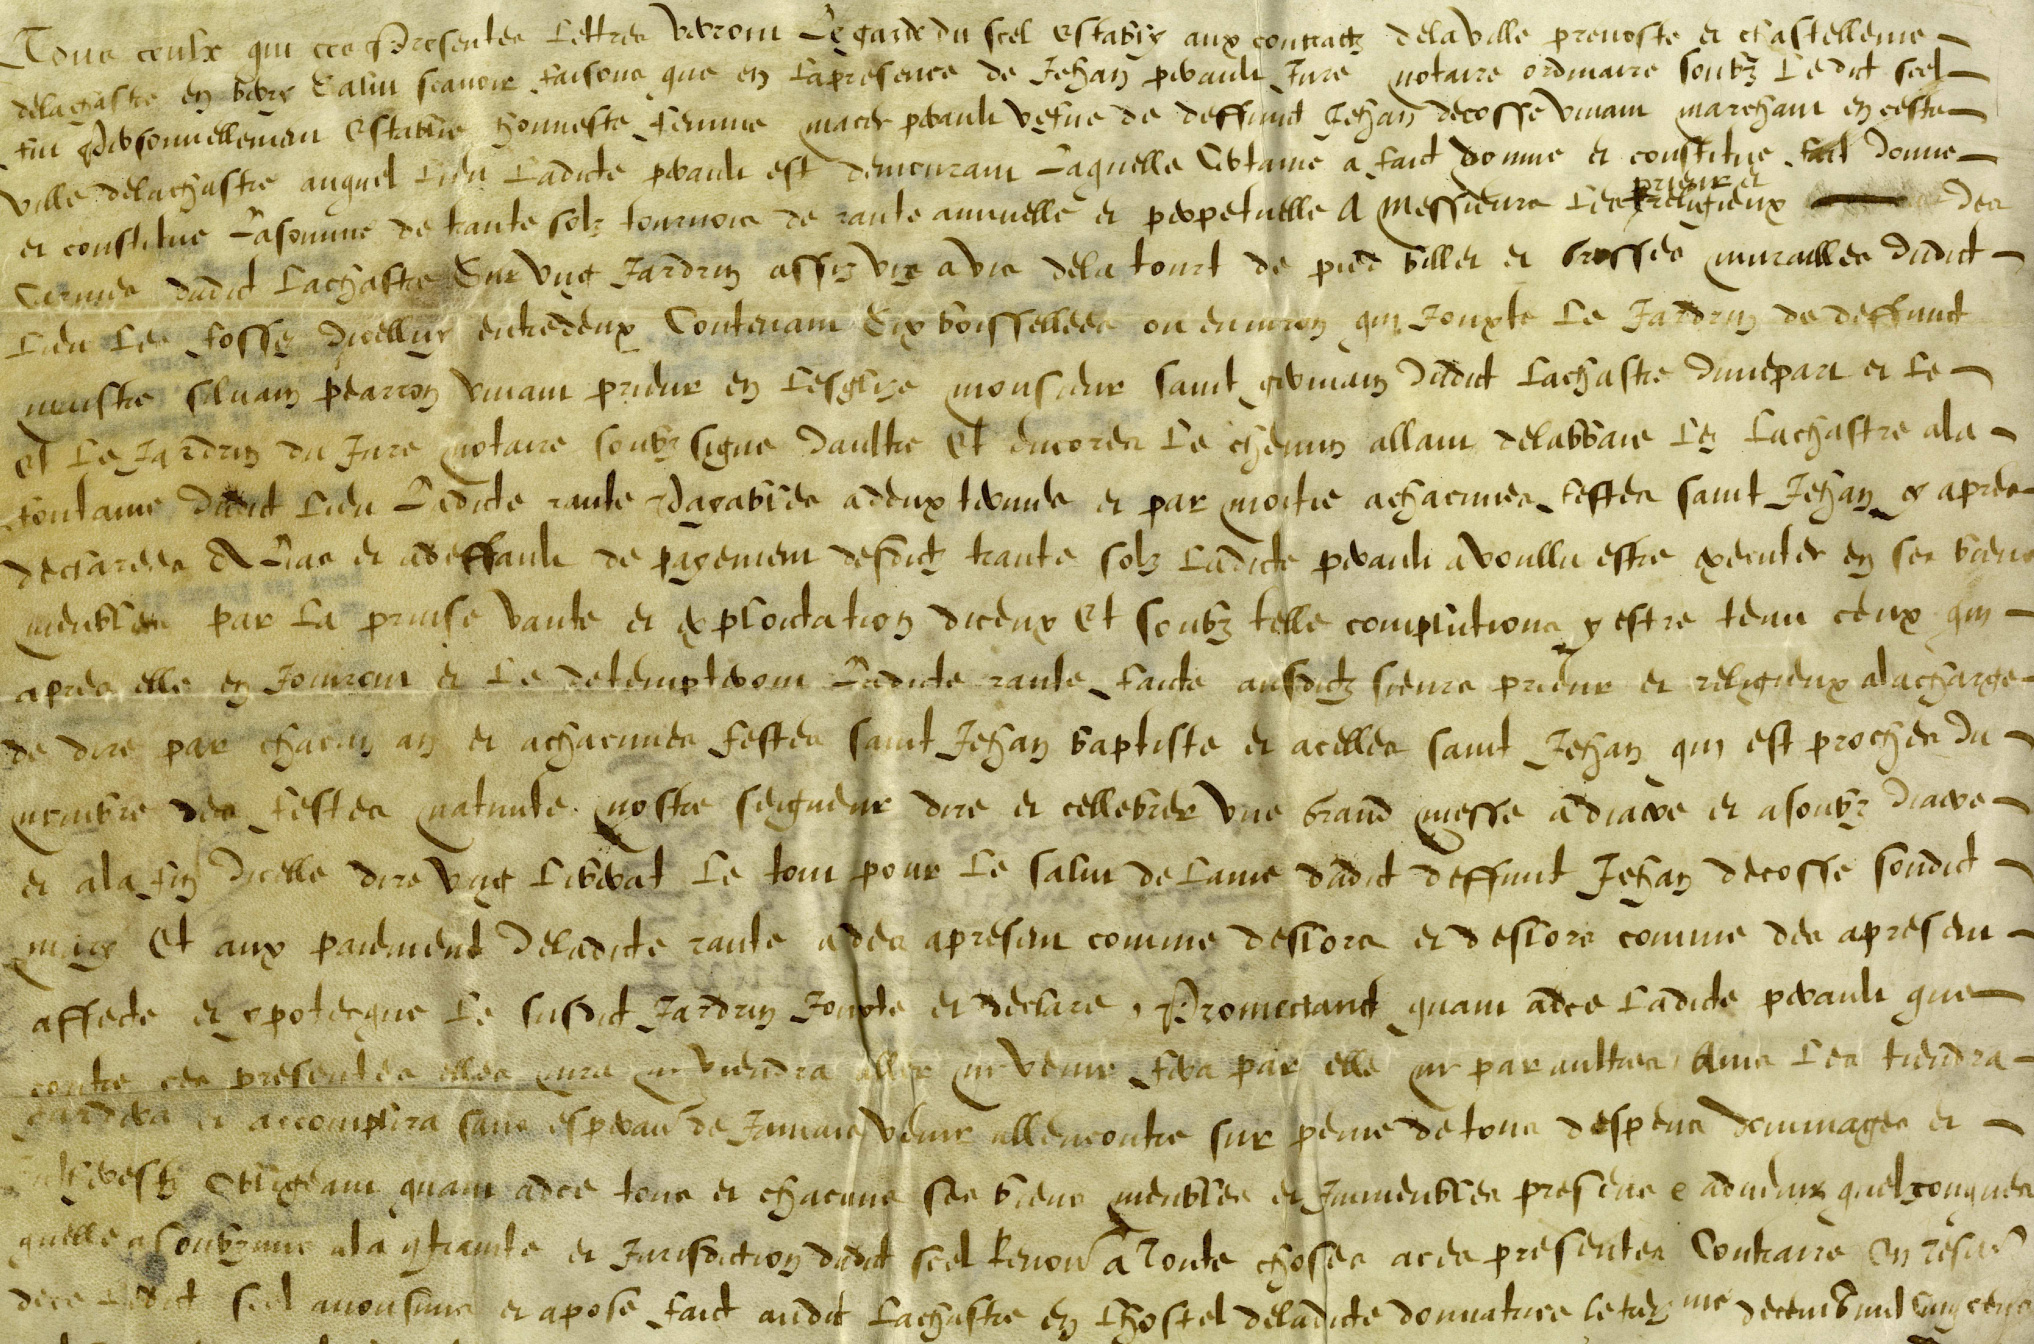 Tous ceulx qui ces presentes lettres verront Le garde du scel estably aux contractz delaville prevoste et chastellenie
delachastre en berry Salut scavoir faisons que en lapresence de Jehan perault Jure notaire ordinaire soubz ledict scel
fut personnellement establie honneste femme perault vefve de deffunct Jehan decosse vivant marchant en ceste
ville delachastre auquel lieu ladicte perault est demeurant Laquelle certaine a faict donne et constitue faict donne
et constitue Lasomme de trante solz tournois de rante annuelle et perpetuelle A Messieurs les prieur et religieux des
Carmes dudict Lachastre Sur ung Jardrin assiz vis avis dela tourt de pied billet et brosses murailles dudict
Lieu les fosse dicelluy entredeux Contenant Six boissellees ou environ qui Jouxte le Jardrin de deffunct
messire silvain pearron vivant prieur en lesglize monsieur sainct germain dudict Lachastre dunepart et le
et le Jardrin du Jure notaire soubz signe daultre Et encores le chemin allant delabbaie lez Lachastre ala
fontaine dudict lieu Ladicte rante payables adeux termes et par moitie achacunes festes sainct Jehan cy apres
declarees et adeffault de payement desdictz trante solz Ladicte perault avoullu estre executer en ses biens
meubles par la prinse vante et exploictation diceux Et soubz telle compultions y estre tenu ceux qui
apres elle en Jouiront et le detempteront Ladicte rante faicte ausdictz sieurs prieur et religieux alacharge
de dire par chacun an et achacunes festes sainct Jehan baptiste et acelles sainct Jehan qui est proches du
nombre des festes nativite nostre seigneur dire et cellebrer une grand messe adiacre et asoubz diacre
et ala fin dicelle dire ung Libera Le tout pour le salut de lame dudict deffunct Jehan decosse sondict
mary Et aux paiement deladicte rante ades apresent comme deslors et deslors comme des apresent
affecte et ypotecque le susdict Jardrin Jouxte et declare, Promectant quant adce ladicte perault que
contre ces presentes elles nira ny viendra aller ny venir fera par elle ny par aultres Ains les tiendra
gardera et accomplira sans esperance de Jamais venir allencontre sur peine de tous despens dommages et
Obligeant quant adce tous et chacuns ses biens meubles et Immeubles presens e advenir quelconques
quelle asoubzmis ala et Jurisdiction dudict scel Renon a Toute choses aces presentes Contraire En
dece ledict scel avonsmis et apose faict audict Lachastre en Lhostel deladicte donnature le decemb mil cinq cens